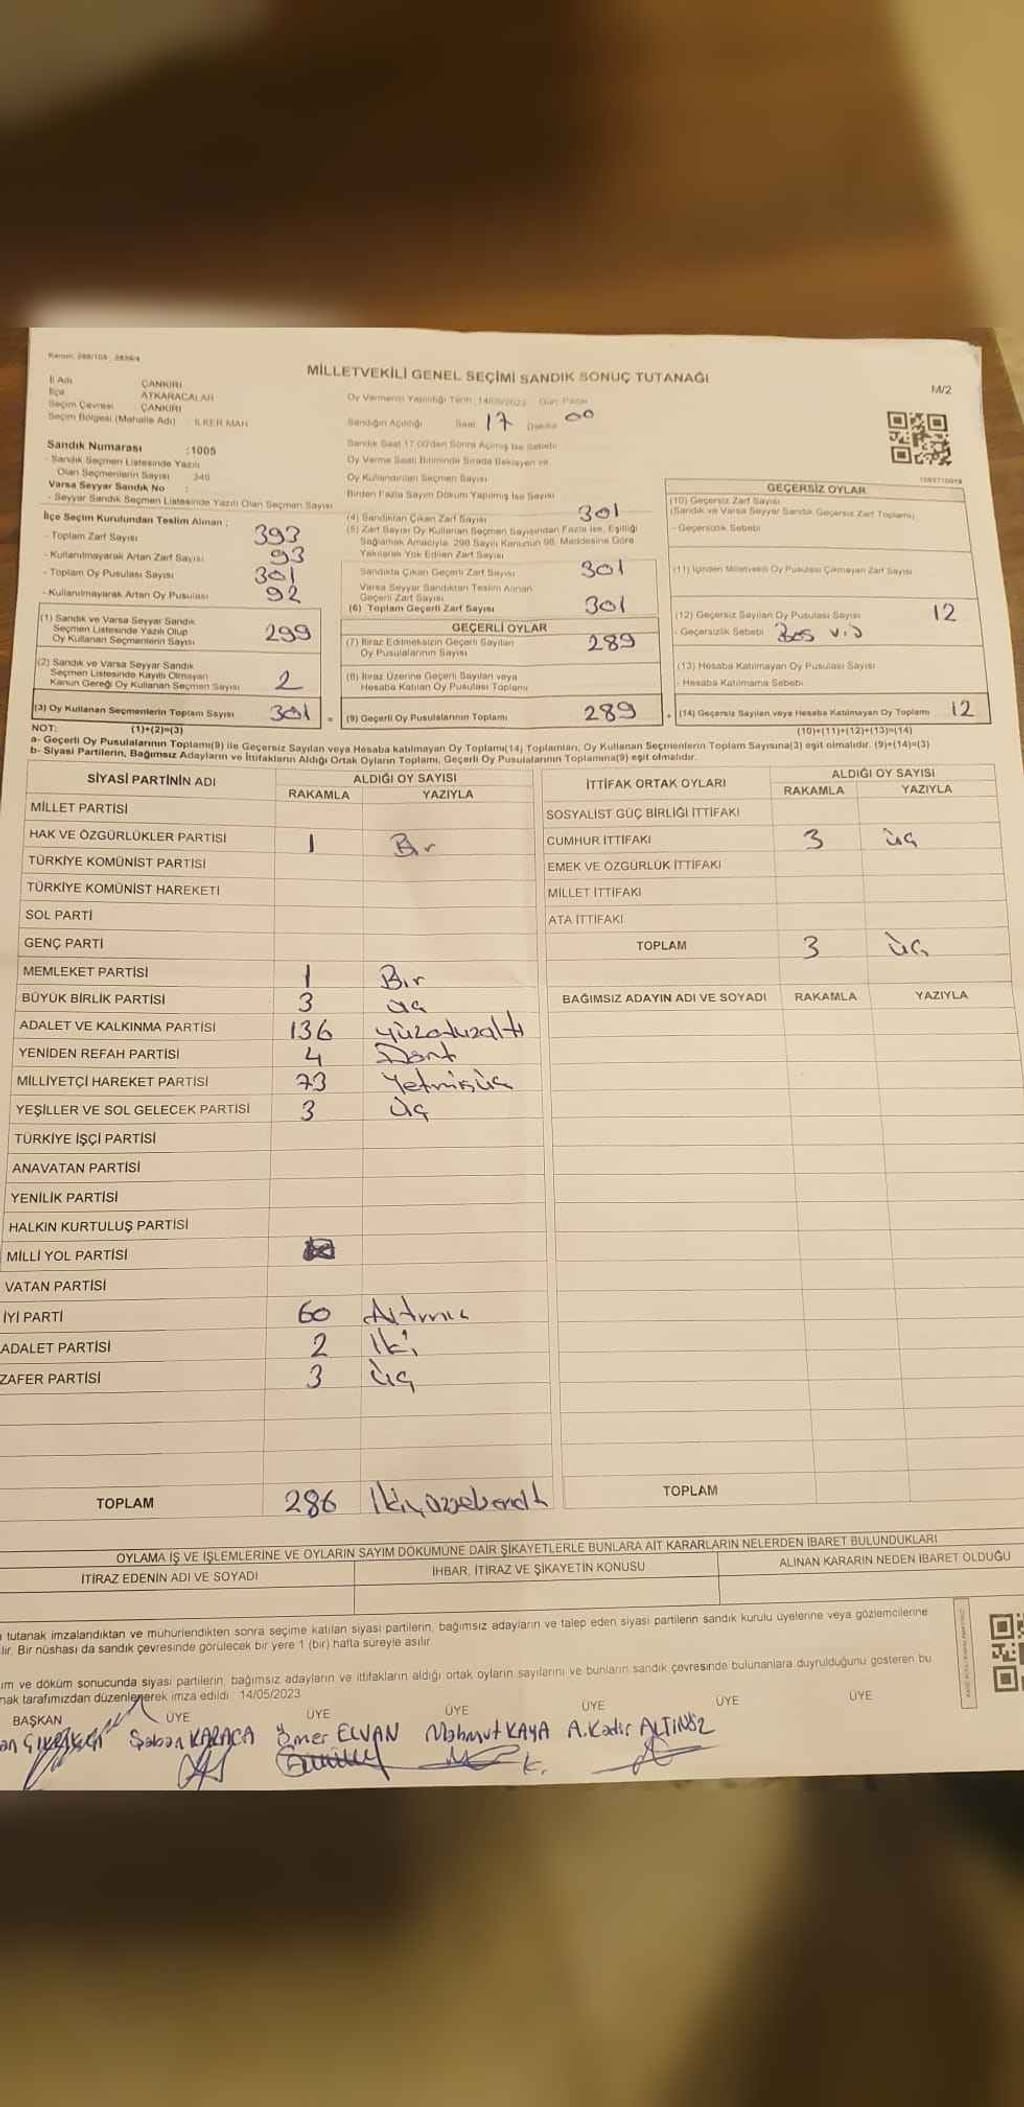 MİLLETVEKİLİ GENEL SEÇİMİ SANDIK SONUÇ TUTANAĞI
M/2
İl Adı ÇANKIRI
İlçe ATKARACALAR
Seçim Çevresi : ÇANKIRI
Seçim Bölgesi (Mahalle Adı) : İLKER MAH
Oy Vermenin Yapıldığı Tarih: 14/05/2023 Gün: Pazar
Sandığın Açıldığı Saat 17 Dakika 00
Sandık Numarası :1005
- Sandık Seçmen Listesinde Yazılı
Olan Seçmenlerin Sayısı : 340
Varsa Seyyar Sandık No :
- Seyyar Sandık Seçmen Listesinde Yazılı Olan Seçmen Sayısı
Oy Kullandırılan Seçmen Sayısı
Birden Fazla Sayım Döküm Yapılmış İse Sayısı
İlçe Seçim Kurulundan Teslim Alınan ;
- Toplam Zarf Sayısı 393
- Kullanılmayarak Artan Zarf Sayısı 93
- Toplam Oy Pusulası Sayısı 301
- Kullanılmayarak Artan Oy Pusulası 92
(1) Sandık ve Varsa Seyyar Sandık
Seçmen Listesinde Yazılı Olup
Oy Kullanan Seçmenlerin Sayısı 299
(2) Sandık ve Varsa Seyyar Sandık
Seçmen Listesinde Kayıtlı Olmayan
Kanun Gereği Oy Kullanan Seçmen Sayısı 2
(3) Oy Kullanan Seçmenlerin Toplam Sayısı 301
(4) Sandıktan Çıkan Zarf Sayısı 301
(5) Zarf Sayısı Oy Kullanan Seçmen Sayısından Fazla İse, Eşitliği
Sağlamak Amacıyla, 298 Sayılı Kanunun 98. Maddesine Göre
Yakılarak Yok Edilen Zarf Sayısı
Sandıkta Çıkan Geçerli Zarf Sayısı 301
Varsa Seyyar Sandıktan Teslim Alınan
Geçerli Zarf Sayısı
(6) Toplam Geçerli Zarf Sayısı 301
GEÇERLİ OYLAR
(7) İtiraz Edilmeksizin Geçerli Sayılan
Oy Pusulalarının Sayısı 289
(8) İtiraz Üzerine Geçerli Sayılan veya
Hesaba Katılan Oy Pusulası Toplamı
(9) Geçerli Oy Pusulalarının Toplamı 289
GEÇERSİZ OYLAR
(10) Geçersiz Zarf Sayısı
(Sandık ve Varsa Seyyar Sandık Geçersiz Zarf Toplamı)
- Geçersizlik Sebebi
(11) İçinden Milletvekili Oy Pusulası Çıkmayan Zarf Sayısı
(12) Geçersiz Sayılan Oy Pusulası Sayısı 12
- Geçersizlik Sebebi Boş v.s
(13) Hesaba Katılmayan Oy Pusulası Sayısı
- Hesaba Katılmama Sebebi
(14) Geçersiz Sayılan veya Hesaba Katılmayan Oy Toplamı 12
NOT: (1)+(2)=(3) (10)+(11)+(12)+(13)=(14)
a- Geçerli Oy Pusulalarının Toplamı(9) ile Geçersiz Sayılan veya Hesaba katılmayan Oy Toplamı(14) Toplamları, Oy Kullanan Seçmenlerin Toplam Sayısına(3) eşit olmalıdır. (9)+(14)=(3)
b- Siyasi Partilerin, Bağımsız Adayların ve İttifakların Aldığı Ortak Oyların Toplamı, Geçerli Oy Pusulalarının Toplamına(9) eşit olmalıdır.
SİYASİ PARTİNİN ADI ALDIĞI OY SAYISI
RAKAMLA YAZIYLA
MİLLET PARTİSİ
HAK VE ÖZGÜRLÜKLER PARTİSİ 1 Bir
TÜRKİYE KOMÜNİST PARTİSİ
TÜRKİYE KOMÜNİST HAREKETİ
SOL PARTİ
GENÇ PARTİ
MEMLEKET PARTİSİ 1 Bir
BÜYÜK BİRLİK PARTİSİ 3 üç
ADALET VE KALKINMA PARTİSİ 136 yüzotuzaltı
YENİDEN REFAH PARTİSİ 4 Dört
MİLLİYETÇİ HAREKET PARTİSİ 73 Yetmişüç
YEŞİLLER VE SOL GELECEK PARTİSİ 3 üç
TÜRKİYE İŞÇİ PARTİSİ
ANAVATAN PARTİSİ
YENİLİK PARTİSİ
HALKIN KURTULUŞ PARTİSİ
MİLLİ YOL PARTİSİ
VATAN PARTİSİ
İYİ PARTİ 60 Altmış
ADALET PARTİSİ 2 İki
ZAFER PARTİSİ 3 üç
TOPLAM 286
İTTİFAK ORTAK OYLARI ALDIĞI OY SAYISI
RAKAMLA YAZIYLA
SOSYALİST GÜÇ BİRLİĞİ İTTİFAKI
CUMHUR İTTİFAKI 3 üç
EMEK VE ÖZGÜRLÜK İTTİFAKI
MİLLET İTTİFAKI
ATA İTTİFAKI
TOPLAM 3 üç
BAĞIMSIZ ADAYIN ADI VE SOYADI RAKAMLA YAZIYLA
TOPLAM
OYLAMA İŞ VE İŞLEMLERİNE VE OYLARIN SAYIM DÖKÜMÜNE DAİR ŞİKAYETLERLE BUNLARA AİT KARARLARIN NELERDEN İBARET BULUNDUKLARI
İTİRAZ EDENİN ADI VE SOYADI İHBAR, İTİRAZ VE ŞİKAYETİN KONUSU ALINAN KARARIN NEDEN İBARET OLDUĞU
tutanak imzalandıktan ve mühürlendikten sonra seçime katılan siyasi partilerin, bağımsız adayların ve talep eden siyasi partilerin sandık kurulu üyelerine veya gözlemcilerine
lir. Bir nüshası da sandık çevresinde görülecek bir yere 1 (bir) hafta süreyle asılır.
ım ve döküm sonucunda siyasi partilerin, bağımsız adayların ve ittifakların aldığı ortak oyların sayılarını ve bunların sandık çevresinde bulunanlara duyrulduğunu gösteren bu
nak tarafımızdan düzenlenerek imza edildi. 14/05/2023
BAŞKAN ÜYE ÜYE ÜYE ÜYE ÜYE ÜYE
Şaban KARACA Ömer ELVAN Mahmut KAYA A.Kadir ALTINÖZ